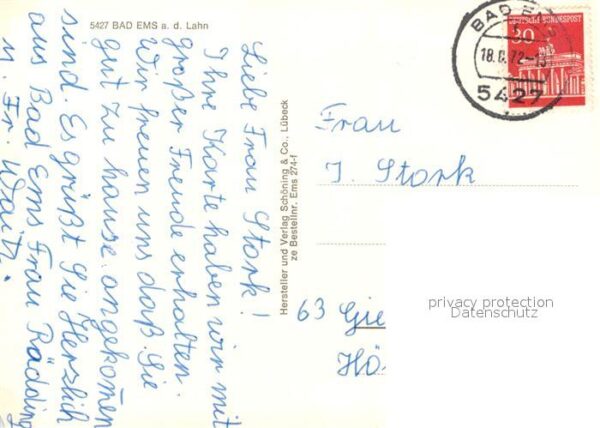 5427 BAD EMS a. d. Lahn
Liebe Frau Stork!
Ihre Karte haben wir mit
großer Freude erhalten.
Wir freuen uns daß Sie
gut zu hause angekomen
sind. Es grüßt Sie Herzlich
aus Bad Ems Frau Rädding
u. Fr. Waitz.
Hersteller und Verlag Schöning & Co., Lübeck
ze Bestellnr. Ems 274-f
BAD EMS
18. 72-18
5427
DEUTSCHE BUNDESPOST
30
Frau
J. Stork
63 Gie
Hö
privacy protection
Datenschutz